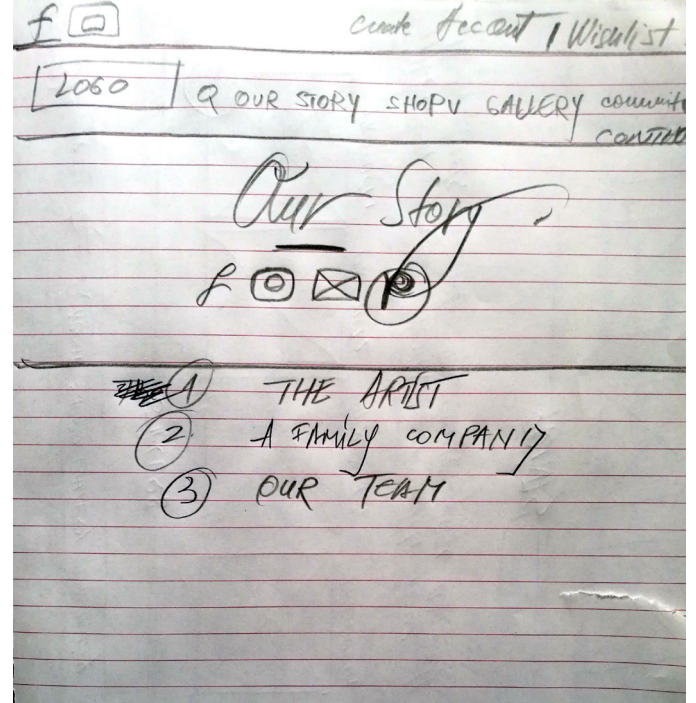 f Create Account | Wishlist
LOGO Q OUR STORY SHOP V GALLERY
Our Story
f
1 THE ARTIST
2. A FAMILY COMPANY
3 OUR TEAM